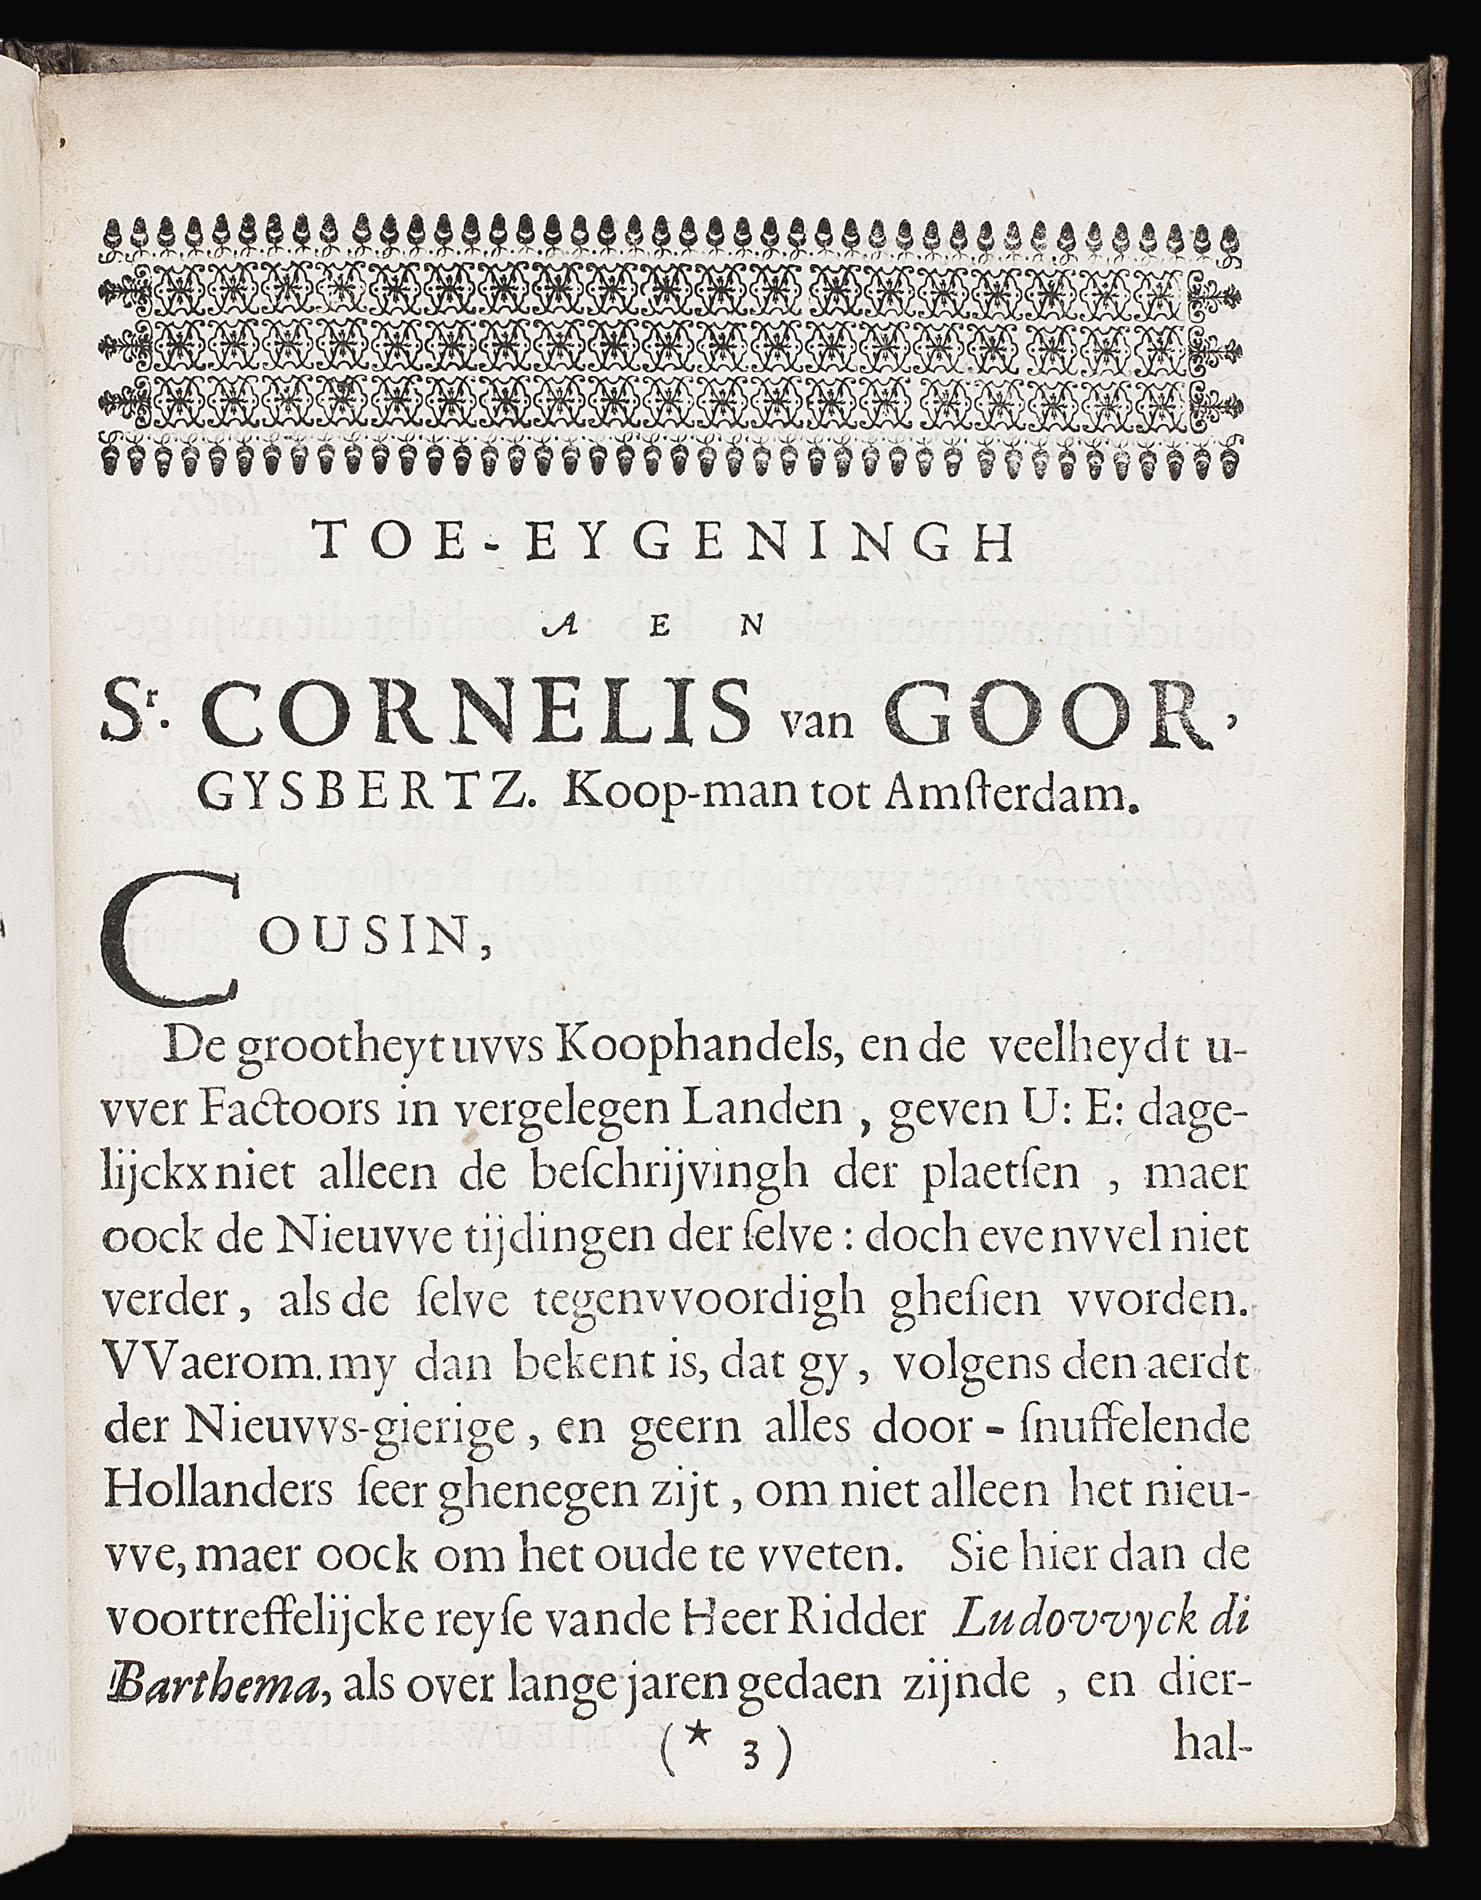 TOE-EYGENINGH
AEN
Sr. CORNELIS van GOOR,
GYSBERTZ. Koop-man tot Amſterdam.
COUSIN,
De grootheyt uvvs Koophandels, en de veelheydt u-
vver Factoors in vergelegen Landen, geven U: E: dage-
lijckx niet alleen de beſchrijvingh der plaetſen, maer
oock de Nieuvve tijdingen der ſelve: doch evenvvel niet
verder, als de ſelve tegenvvoordigh gheſien vvorden.
VVaerom. my dan bekent is, dat gy, volgens den aerdt
der Nieuvvs-gierige, en geern alles door-ſnuffelende
Hollanders ſeer ghenegen zijt, om niet alleen het nieu-
vve, maer oock om het oude te vveten. Sie hier dan de
voortreffelijcke reyſe vande Heer Ridder Ludovvyck di
Barthema, als over lange jaren gedaen zijnde, en dier-
(* 3) hal-